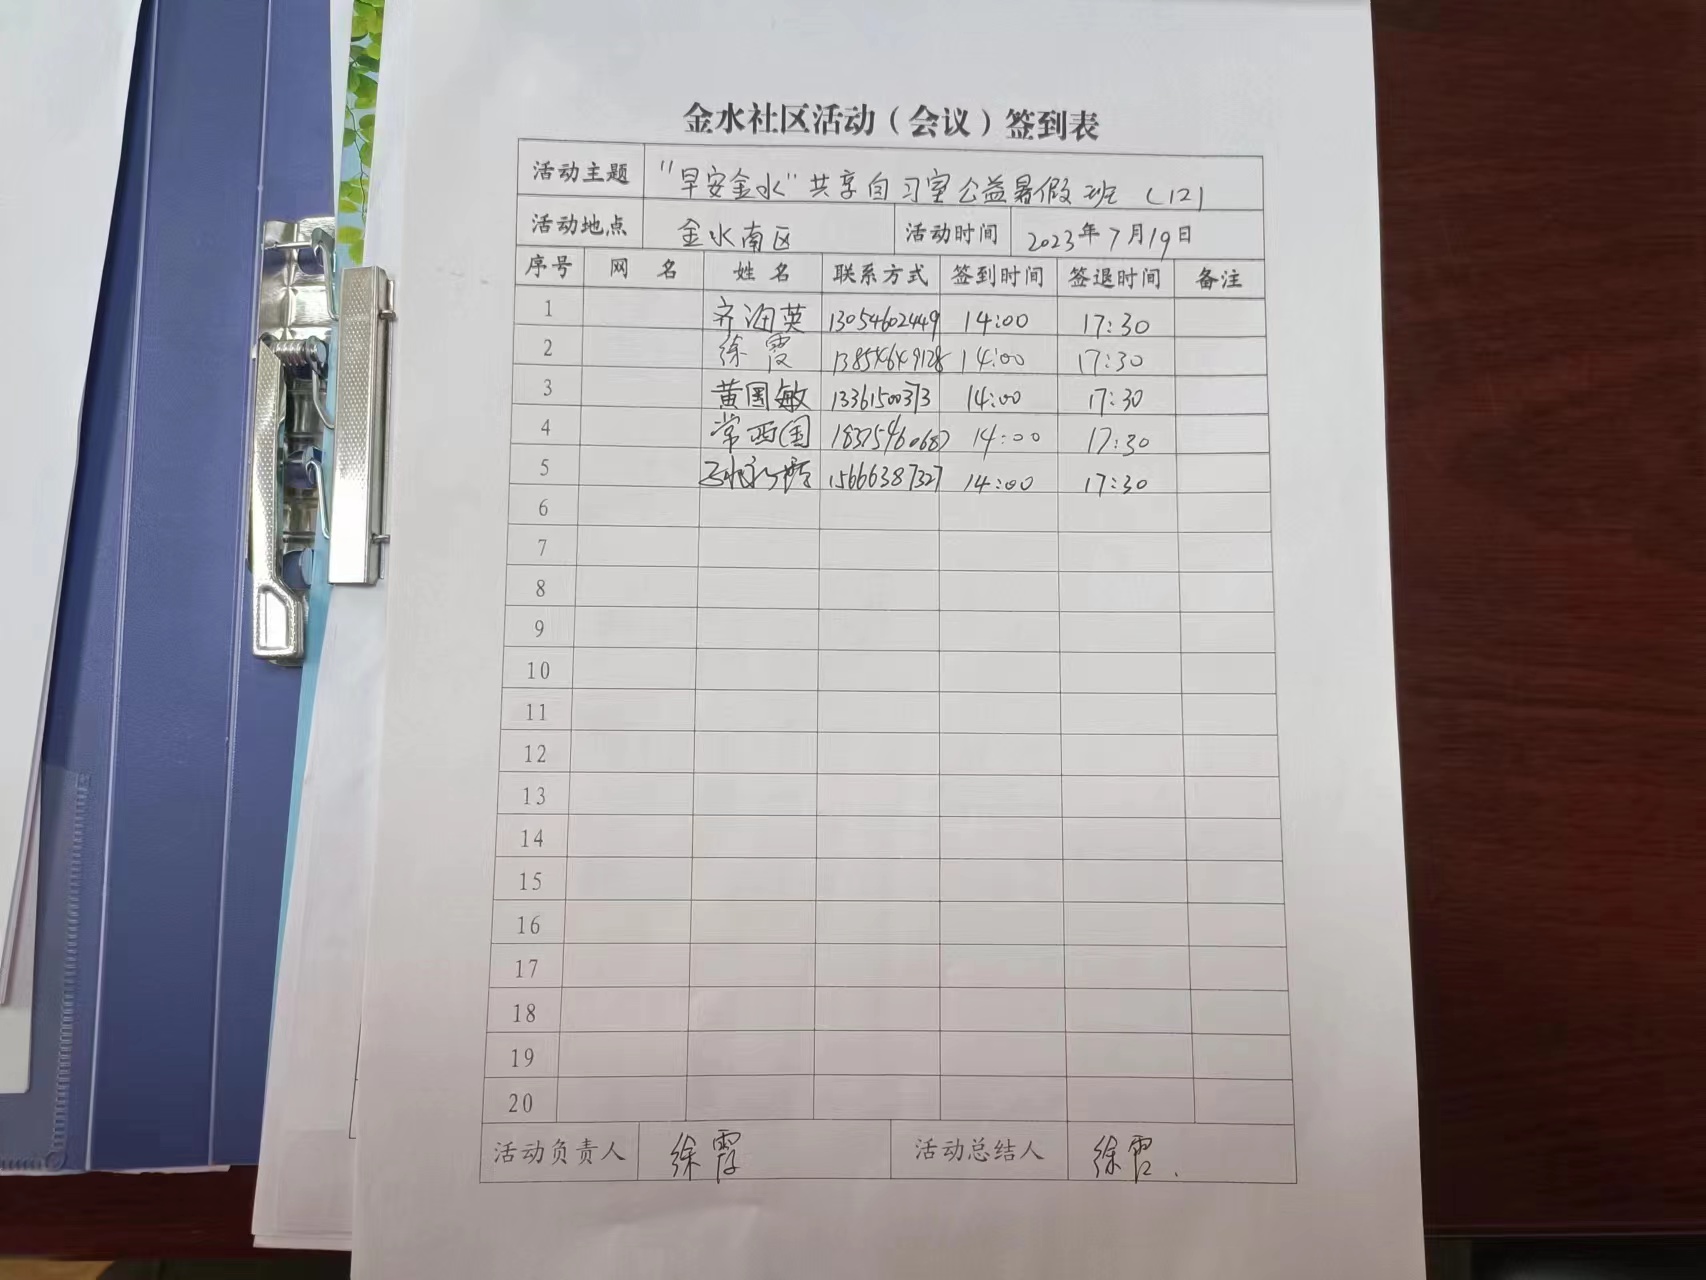 金水社区活动（会议）签到表
活动主题 "早安金水"共享自习室公益暑假班（12）
活动地点 金水南区 活动时间 2023年7月19日
序号 网名 姓名 联系方式 签到时间 签退时间 备注
1 齐海英 13054602449 14:00 17:30
2 徐霞 13854649128 14:00 17:30
3 黄国敏 14:00 17:30
4 常西国 14:00 17:30
5 15666387327 14:00 17:30
6
7
8
9
10
11
12
13
14
15
16
17
18
19
20
活动负责人 徐霞 活动总结人 徐霞.